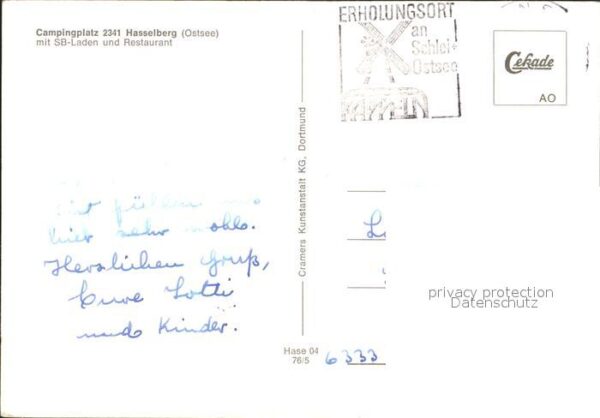 Campingplatz 2341 Hasselberg (Ostsee)
mit SB-Laden und Restaurant
ERHOLUNGSORT
an
Schlei+
Ostsee
KAPPELN
Cekade
AO
Cramers Kunstanstalt KG, Dortmund
Wir fühlen uns
hier sehr wohl.
Herzlichen Gruß,
Eure Lotti
und Kinder.
privacy protection
Datenschutz
Hase 04
76/5
6333